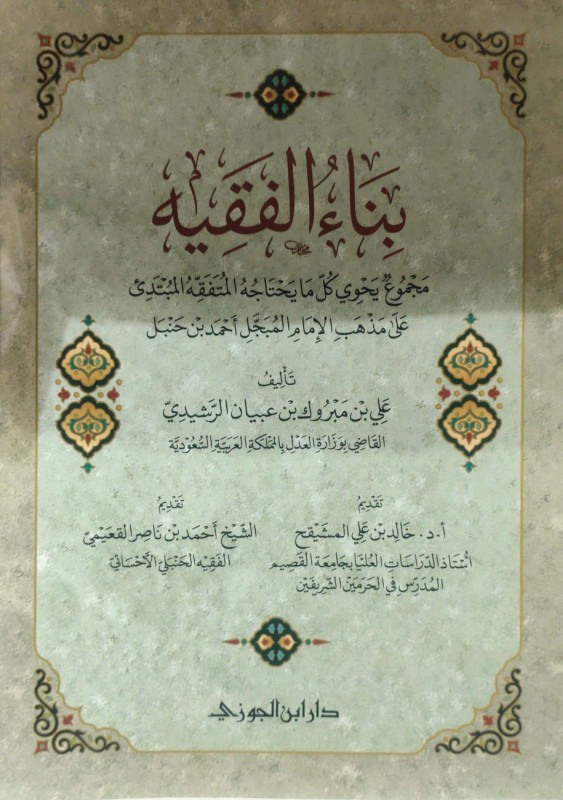 بِنَاءُ الفَقِيه
مَجْمُوعٌ يَحْوِي كُلَّ مَا يَحْتَاجُهُ المُتَفَقِّهُ المُبْتَدِئ
عَلَى مَذْهَبِ الإِمَامِ المُبَجَّلِ أَحْمَدَ بْنِ حَنْبَل
تَأْلِيفُ
عَلِي بْنِ مَبْرُوك بْنِ عبيان الرَّشِيدِيّ
القَاضِي بِوَزَارَةِ العَدْلِ بِالمَمْلَكَةِ العَرَبِيَّةِ السُّعُودِيَّة
تَقْدِيمُ
أ.د. خَالِد بْنِ عَلِي المشَيْقِح
أُسْتَاذ الدِّرَاسَاتِ العُليَا بِجَامِعَةِ القَصِيم
المُدَرِّس فِي الحَرَمَيْنِ الشَّرِيفَيْن
تَقْدِيمُ
الشَّيْخ أَحْمَد بْنِ نَاصِر القعَيْمِيّ
الفَقِيه الحَنْبَلِيّ الأَحْسَائِيّ
دار ابن الجوزي